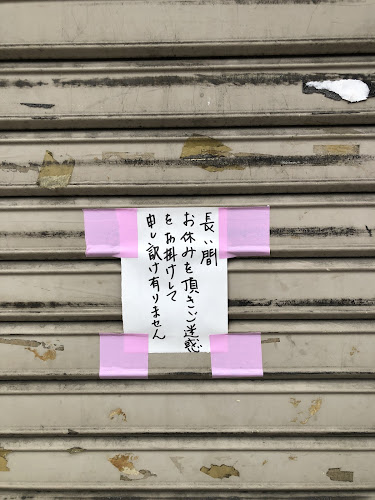 長い間
お休みを頂きご迷惑
をお掛けして
申し訳け有りません